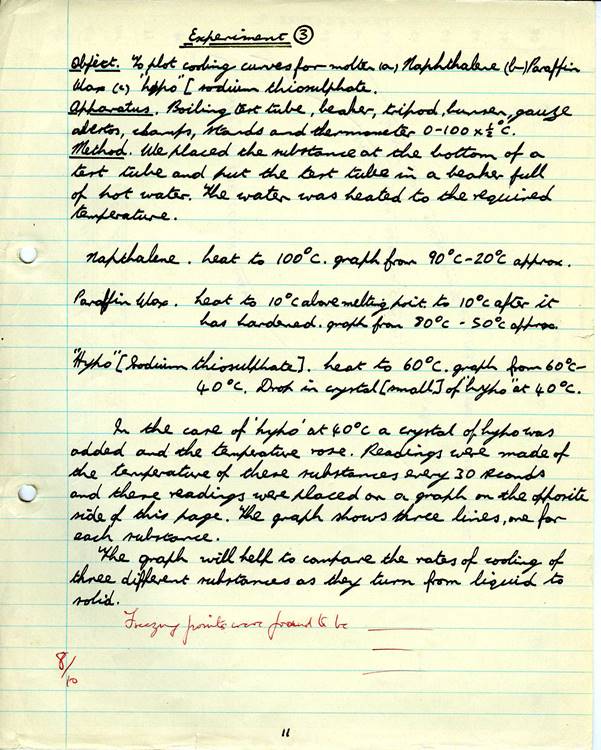 Experiment ③
Object. To plot cooling curves for molten (a) Naphthalene (b) Paraffin
Wax (c) "hypo" [sodium thiosulphate.
Apparatus. Boiling test tube, beaker, tripod, bunsen, gauze
clamps, stands and thermometer 0-100 x ½°C.
Method. We placed the substance at the bottom of a
test tube and put the test tube in a beaker full
of hot water. The water was heated to the required
temperature.
Napthalene. heat to 100°C. graph from 90°C-20°C approx.
Paraffin Wax. heat to 10°C above melting point to 10°C after it
has hardened. graph from 80°C - 50°C approx.
"Hypo" [Sodium thiosulphate]. heat to 60°C. graph from 60°C-
40°C. Drop in crystal [small] of "hypo" at 40°C.
In the case of 'hypo' at 40°C a crystal of hypo was
added and the temperature rose. Readings were made of
the temperature of these substances every 30 seconds
and these readings were placed on a graph on the opposite
side of this page. The graph shows three lines, one for
each substance.
The graph will help to compare the rates of cooling of
three different substances as they turn from liquid to
solid.
Freezing points were found to be
8/10
11